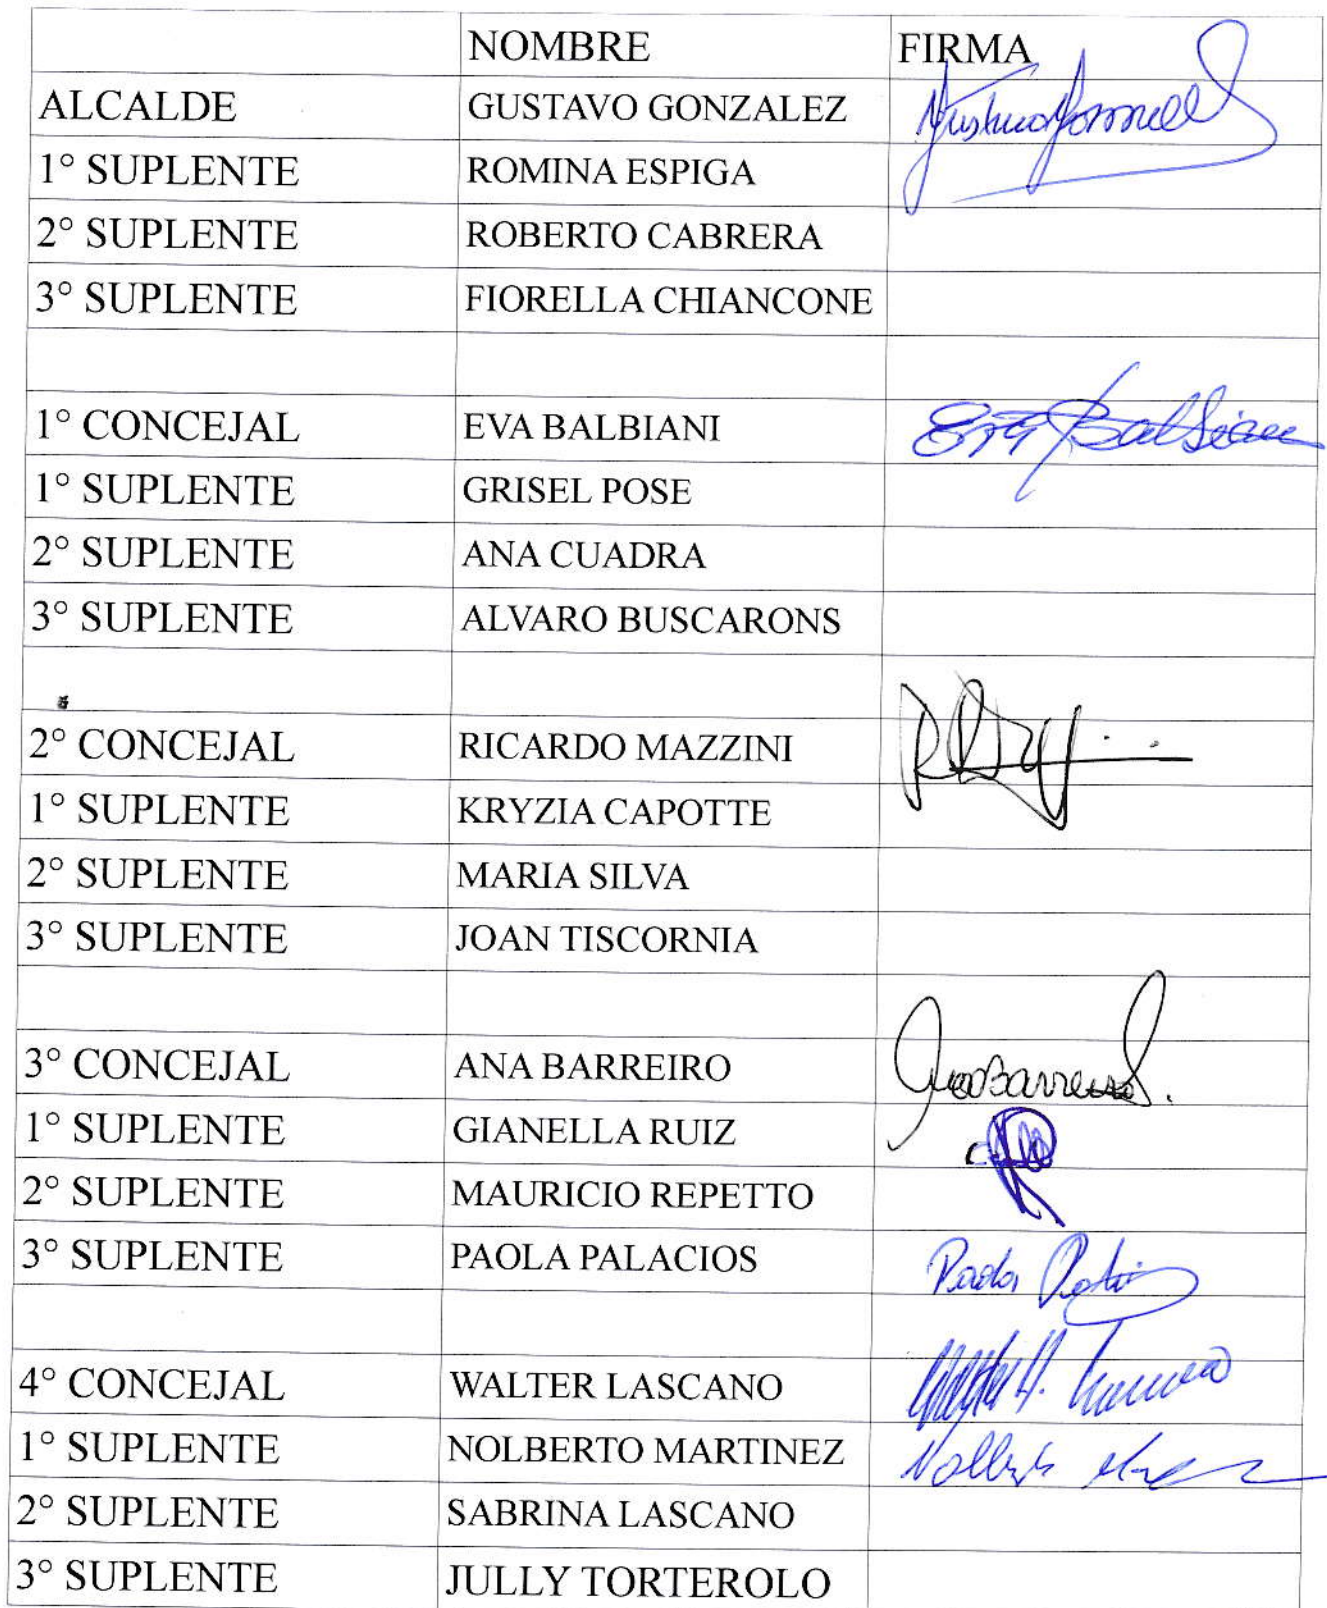 NOMBRE FIRMA
ALCALDE GUSTAVO GONZALEZ
1° SUPLENTE ROMINA ESPIGA
2° SUPLENTE ROBERTO CABRERA
3° SUPLENTE FIORELLA CHIANCONE
1° CONCEJAL EVA BALBIANI Eva Balbiani
1° SUPLENTE GRISEL POSE
2° SUPLENTE ANA CUADRA
3° SUPLENTE ALVARO BUSCARONS
2° CONCEJAL RICARDO MAZZINI
1° SUPLENTE KRYZIA CAPOTTE
2° SUPLENTE MARIA SILVA
3° SUPLENTE JOAN TISCORNIA
3° CONCEJAL ANA BARREIRO
1° SUPLENTE GIANELLA RUIZ
2° SUPLENTE MAURICIO REPETTO
3° SUPLENTE PAOLA PALACIOS Paola
4° CONCEJAL WALTER LASCANO
1° SUPLENTE NOLBERTO MARTINEZ
2° SUPLENTE SABRINA LASCANO
3° SUPLENTE JULLY TORTEROLO